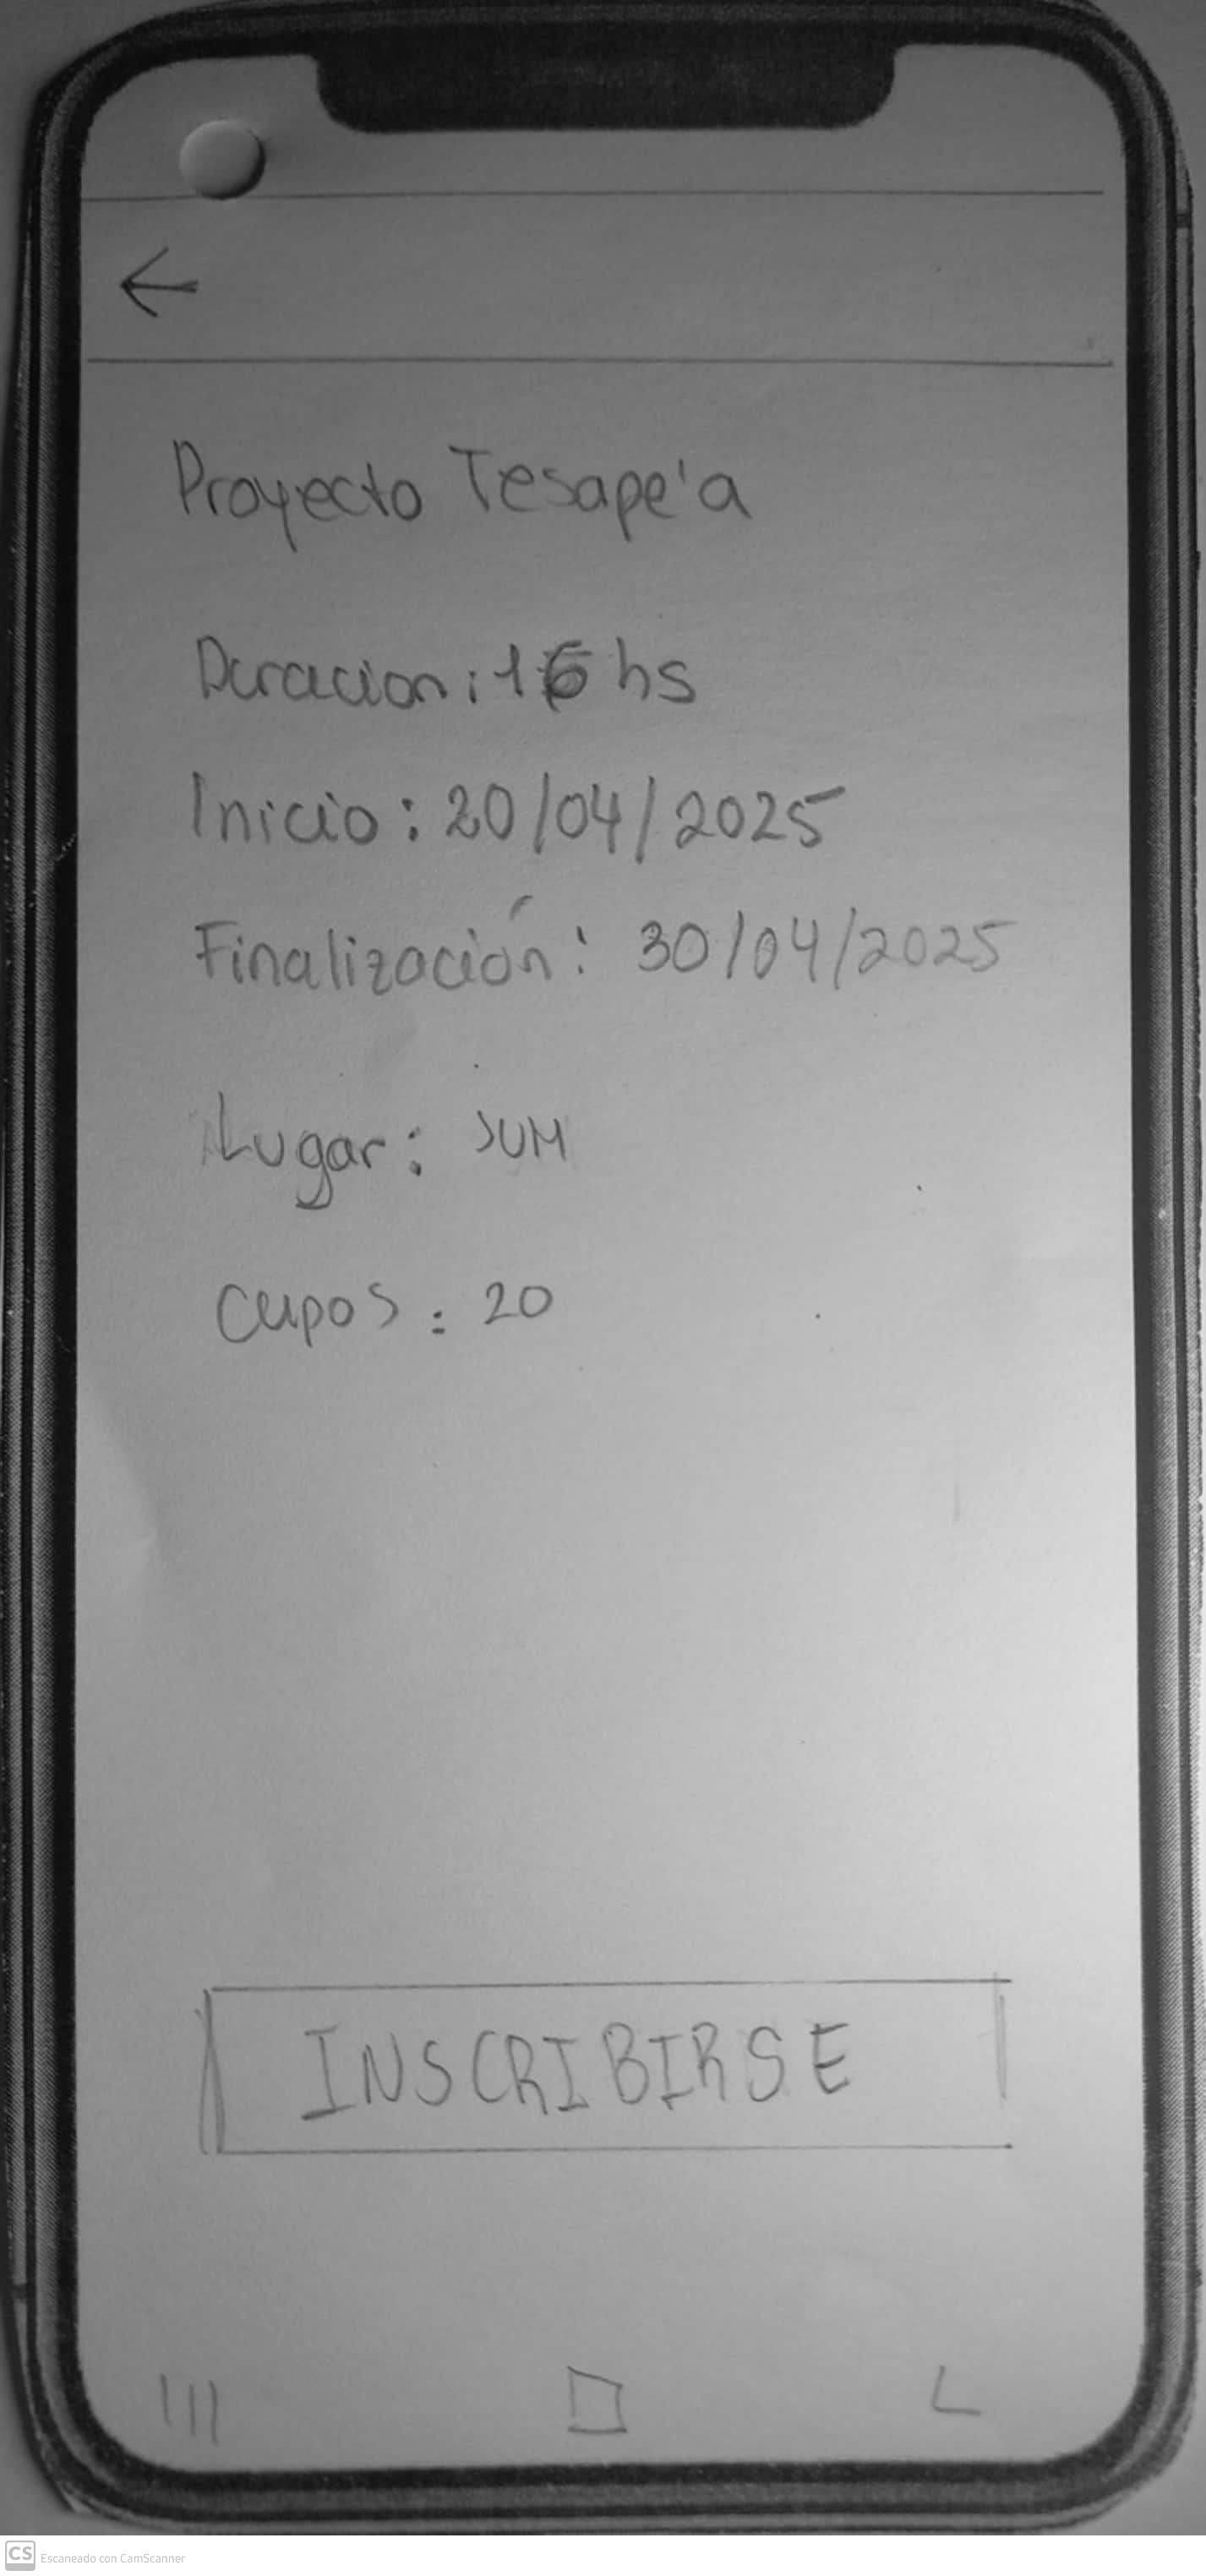 ←
Proyecto Tesape'a
Duracion: 16 hs
Inicio: 20/04/2025
Finalización: 30/04/2025
Lugar: SUM
Cupos: 20
INSCRIBIRSE
CS Escaneado con CamScanner